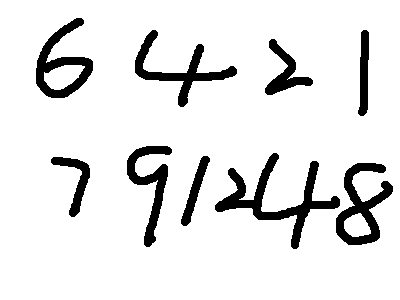 6 4 2 1
7 91248